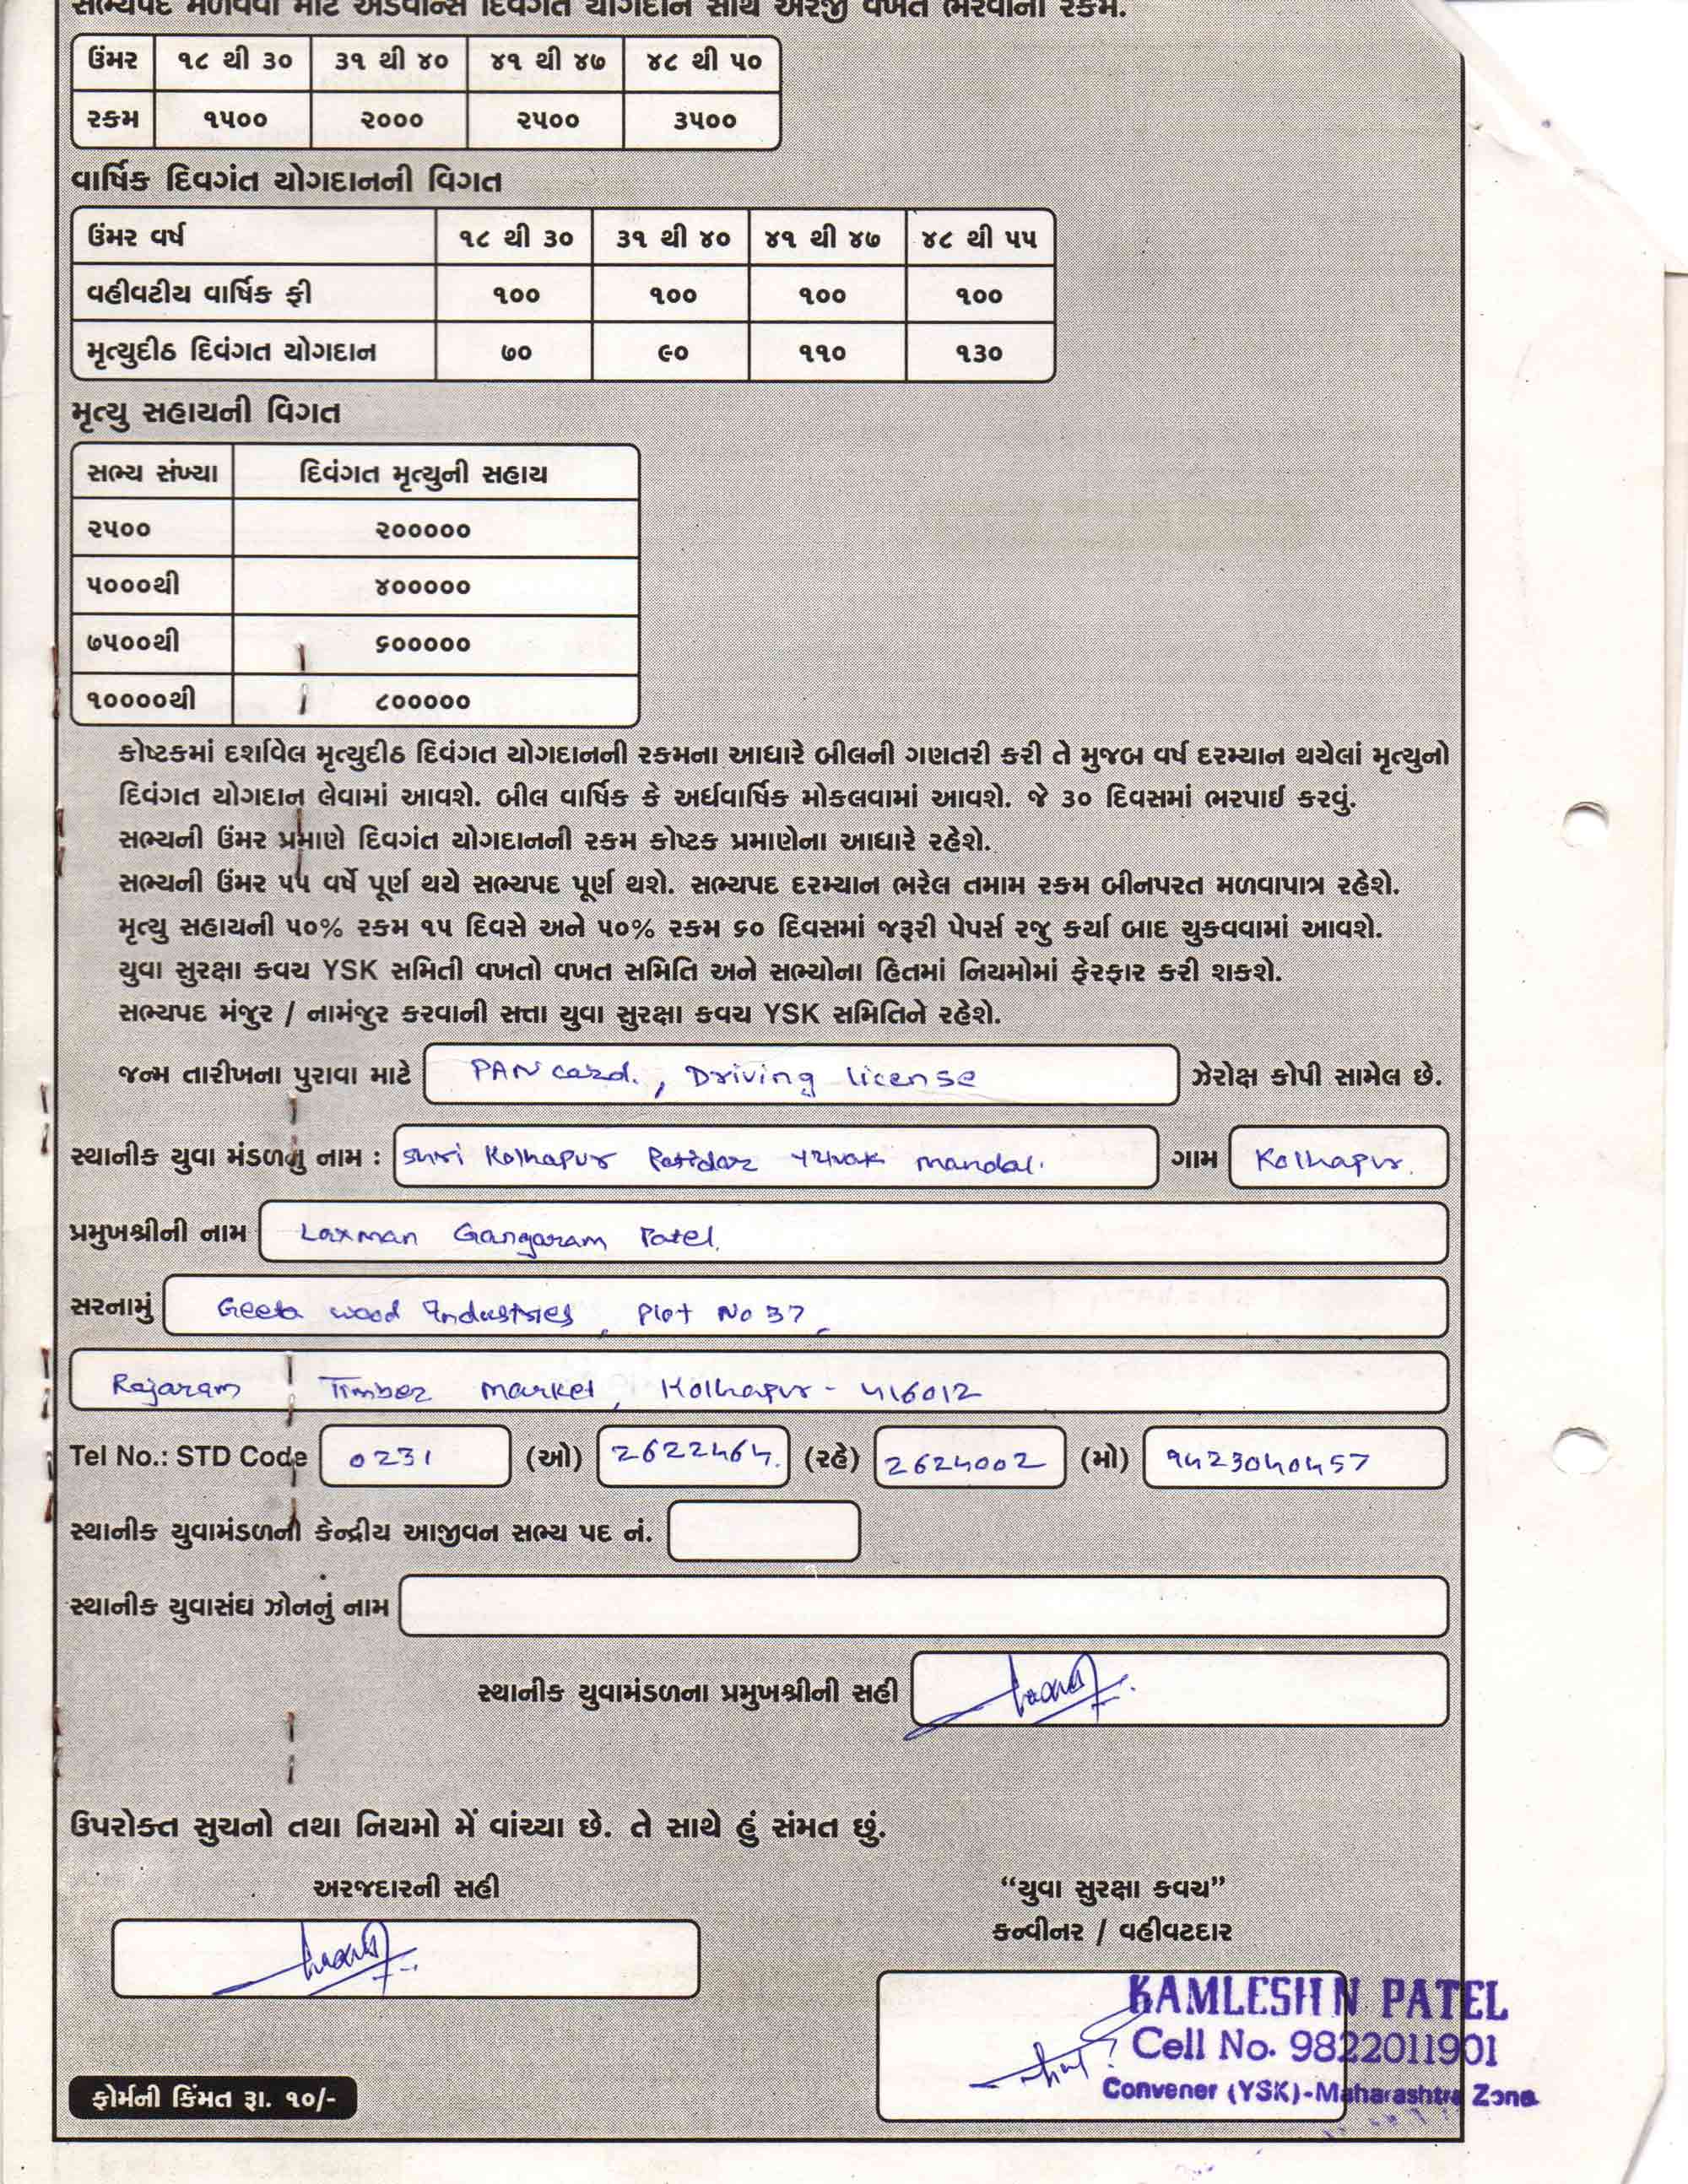 સભ્યપદ મેળવવા માટે એડવાન્સ દિવંગત યોગદાન સાથે અરજી વખતે ભરવાની રકમ.
ઉંમર ૧૮ થી ૩૦ ૩૧ થી ૪૦ ૪૧ થી ૪૭ ૪૮ થી ૫૦
રકમ ૧૫૦૦ ૨૦૦૦ ૨૫૦૦ ૩૫૦૦
વાર્ષિક દિવગંત યોગદાનની વિગત
ઉંમર વર્ષ ૧૮ થી ૩૦ ૩૧ થી ૪૦ ૪૧ થી ૪૭ ૪૮ થી ૫૫
વહીવટીય વાર્ષિક ફી ૧૦૦ ૧૦૦ ૧૦૦ ૧૦૦
મૃત્યુદીઠ દિવંગત યોગદાન ૭૦ ૯૦ ૧૧૦ ૧૩૦
મૃત્યુ સહાયની વિગત
સભ્ય સંખ્યા દિવંગત મૃત્યુની સહાય
૨૫૦૦ ૨૦૦૦૦૦
૫૦૦૦થી ૪૦૦૦૦૦
૭૫૦૦થી ૬૦૦૦૦૦
૧૦૦૦૦થી ૮૦૦૦૦૦
કોષ્ટકમાં દર્શાવેલ મૃત્યુદીઠ દિવંગત યોગદાનની રકમના આધારે બીલની ગણતરી કરી તે મુજબ વર્ષ દરમ્યાન થયેલાં મૃત્યુનો
દિવંગત યોગદાન લેવામાં આવશે. બીલ વાર્ષિક કે અર્ધવાર્ષિક મોકલવામાં આવશે. જે ૩૦ દિવસમાં ભરપાઈ કરવું.
સભ્યની ઉંમર પ્રમાણે દિવગંત યોગદાનની રકમ કોષ્ટક પ્રમાણેના આધારે રહેશે.
સભ્યની ઉંમર ૫૫ વર્ષે પૂર્ણ થયે સભ્યપદ પૂર્ણ થશે. સભ્યપદ દરમ્યાન ભરેલ તમામ રકમ બીનપરત મળવાપાત્ર રહેશે.
મૃત્યુ સહાયની ૫૦% રકમ ૧૫ દિવસે અને ૫૦% રકમ ૬૦ દિવસમાં જરૂરી પેપર્સ રજુ કર્યા બાદ ચુકવવામાં આવશે.
યુવા સુરક્ષા કવચ YSK સમિતી વખતો વખત સમિતિ અને સભ્યોના હિતમાં નિયમોમાં ફેરફાર કરી શકશે.
સભ્યપદ મંજુર / નામંજુર કરવાની સત્તા યુવા સુરક્ષા કવચ YSK સમિતિને રહેશે.
જન્મ તારીખના પુરાવા માટે PAN card., Driving license ઝેરોક્ષ કોપી સામેલ છે.
સ્થાનીક યુવા મંડળનું નામ : Shri Kolhapur Patidar Yuvak mandal. ગામ Kolhapur.
પ્રમુખશ્રીની નામ Laxman Gangaram Patel.
સરનામું Geeta wood Industries, Plot No 37,
Rajaram Timber market, Kolhapur - 416012
Tel No.: STD Code 0231 (ઓ) 2622464. (રહે) 2624002 (મો) 9423040457
સ્થાનીક યુવામંડળનો કેન્દ્રીય આજીવન સભ્ય પદ નં.
સ્થાનીક યુવાસંઘ ઝોનનું નામ
સ્થાનીક યુવામંડળના પ્રમુખશ્રીની સહી
ઉપરોક્ત સુચનો તથા નિયમો મેં વાંચ્યા છે. તે સાથે હું સંમત છું.
અરજદારની સહી
“યુવા સુરક્ષા કવચ”
કન્વીનર / વહીવટદાર
KAMLESH N PATEL
Cell No. 9822011901
Convener (YSK)-Maharashtra Zone
ફોર્મની કિંમત રૂા. ૧૦/-